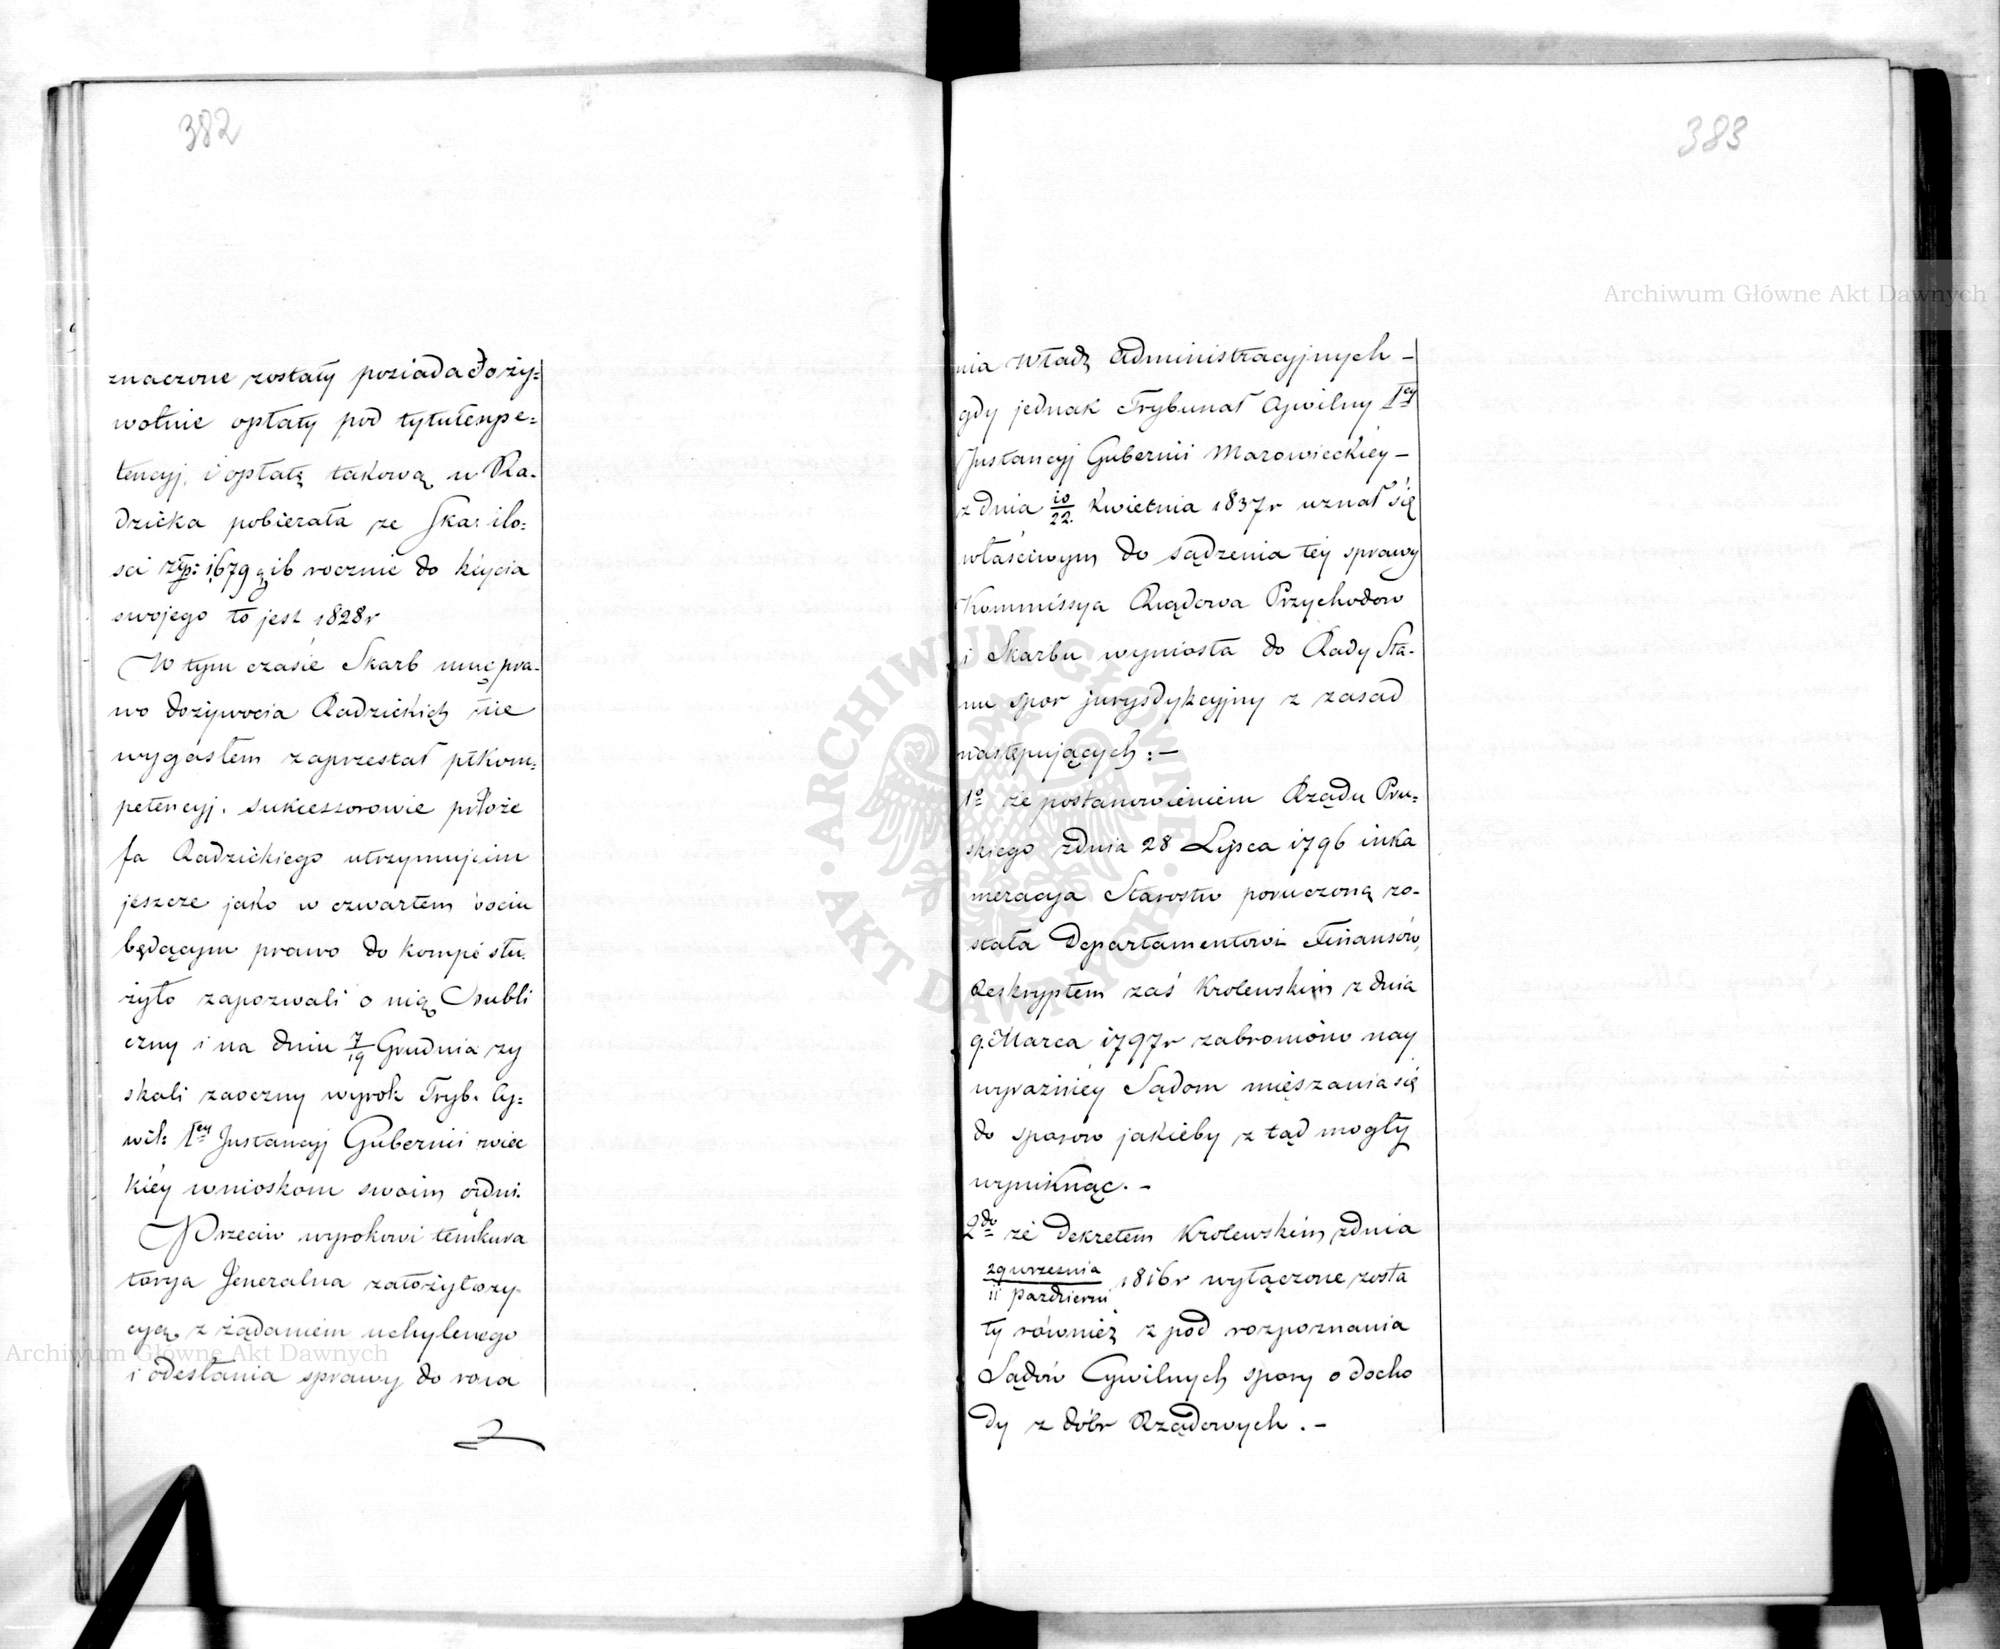 382
znaczone zostały posiada doży=
wotnie opłaty pod tytułempe=
tencyj, i opłatę takową w Ra-
dzicka pobierała ze Skar ilo=
sci złp: 1679 g 16 rocznie do życia
swojego to jest 1828r
W tym czasie Skarb pra-
wo dożywocia Radzickich nie
wygasłem zaprzestał kom=
petencyj. sukcessorowie
fa Radzickiego utrzymując im
jeszcze jako w czwartem
będącym prawo do kompe słu-
żyło zapozwali o nią publi
czny i na dniu 7/19 Grudnia zy
skali zaoczny wyrok Tryb. Cy=
wil: 1ey Instancyj Gubernii wiec
kiey wnioskom swoim
Przeciw wyrokowi temkura
torya Jeneralna założyłozy-
cyą z żądaniem uchylenego
i odesłania sprawy do roza
383
nia Władz Administracyjnych –
gdy jednak Trybunał Cywilny 1ey
Instancyj Gubernii Mazowieckiey –
z dnia 10/22. Kwietnia 1837r uznał się
właściwym do sądzenia tey sprawy
Kommissya Rządowa Przychodow
i Skarbu wyniosła do Rady Sta-
nu spor jurysdykcyjny z zasad
następujących: –
1o że postanowieniem Rządu Pru=
skiego zdnia 28 Lipca 1796 inka
meracya Starostw poruczoną zo-
stała Departamentowi Finansów,
Reskryptem zaś Krolewskim z dnia
9. Marca 1797r zabroniono nay
wyraźniey Sądom mięszania się
do sporow jakieby z tąd mogły
wyniknąć. –
2do że Dekretem Krolewskim zdnia
29 wrzesnia/11 Pazdziernii 1816r wyłączone zosta
ły również z pod rozpoznania
Sądów Cywilnych spory o docho
dy z dóbr Rządowych. –
Archiwum Główne Akt Dawnych
Archiwum Główne Akt Dawnych
ARCHIWUM GŁÓWNE · AKT DAWNYCH ·